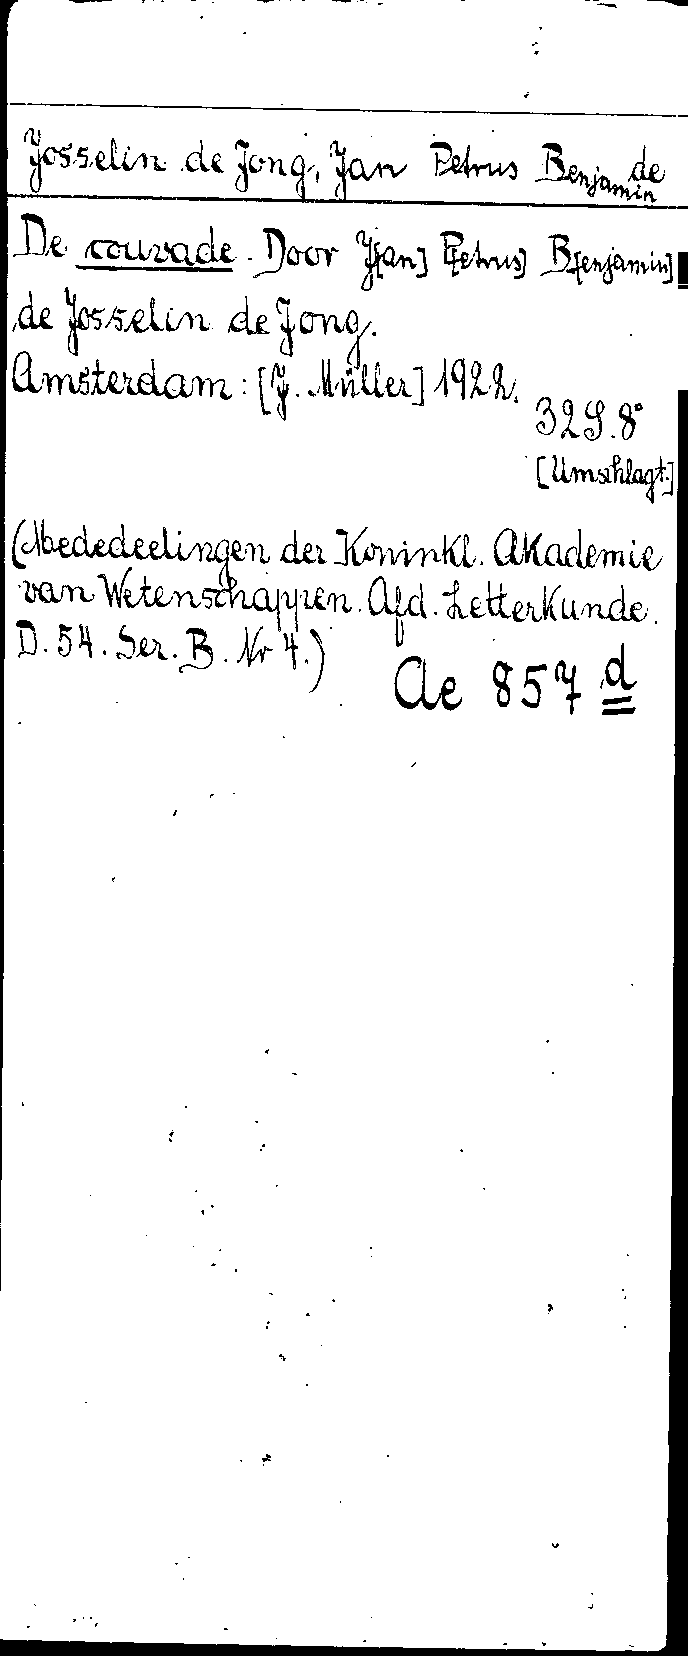 Josselin de Jong, Jan Petrus Benjamin de
De couvade. Door J[an] P[etrus] B[enjamin]
de Josselin de Jong.
Amsterdam: [J. Müller] 1922.
32 S. 8°
[Umschlagt.]
(Mededeelingen der Koninkl. Akademie
van Wetenschappen. Afd. Letterkunde.
D. 54. Ser. B. Nr 4.)
Ae 857 d